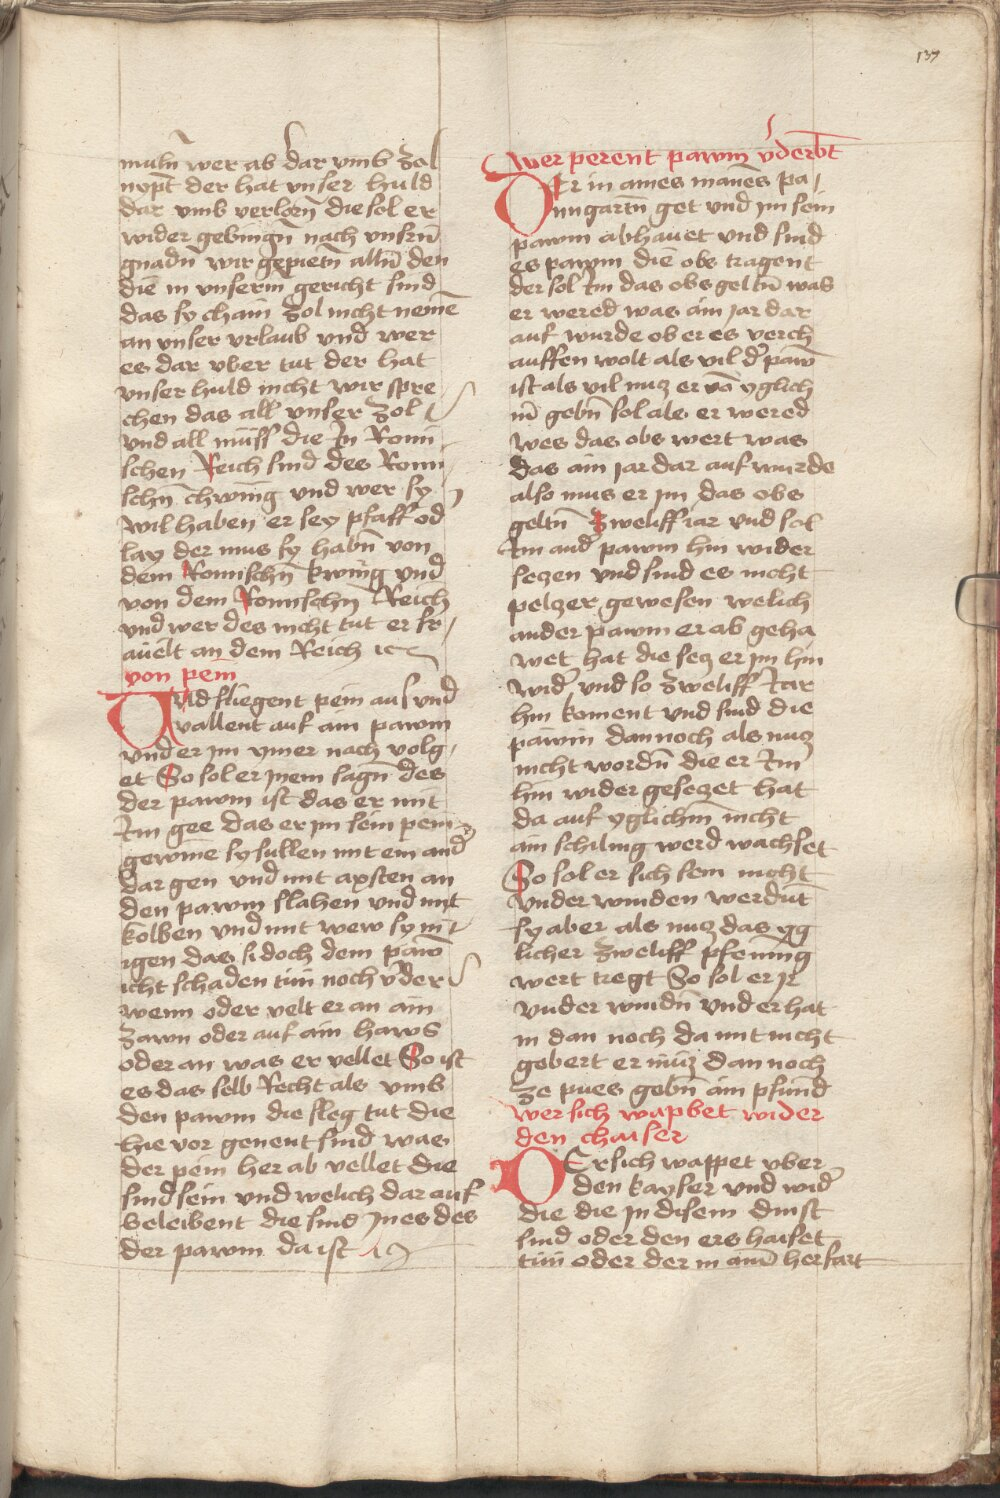 137
muln̄ wer ab dar vmb zol
nympt der hat vnser huld
dar vmb verlorn̄ die sol er
wider gebingn̄ nach vnsrn̄
gnadn̄ wir gepietn̄ alln̄ den
die in vnserm gericht sind
das sy chain zol nicht nemē
an vnser vrlaub vnd wer
es dar vber tut der hat
vnser huld nicht wir spre
chen das all vnser zol
vnd all muss die In Romi
schen Reich sind des Romi
schn̄ chwing vnd wer sy
wil haben er sey pfaff od
lay der mus sy habn̄ von
dem Romischn̄ kwing vnd
von dem Romischn̄ Reich
vnd wer des nicht tut er fr
auelt an dem Reich
von pein
Vnd fliegent pein aus vnd
vallent auf ain pawm
vnd er im ymer nach volg
et So sol er jnem sagn̄ des
der pawm ist das er mit
Im gee das er jm sein pein
gewine sy sullen mit ein and̄
dar gen vnd mit axsten an
den pawm slahen vnd mit
kolben vnd mit wew sy m
igen das si doch dem pawm̄
icht schaden tun noch vͤder
wenn oder velt er an ain
zawn oder auf ain haws
oder an was er vellet So ist
es das selb Recht als vmb
den pawm die fleg tut die
hie vor genent sind was
der pein her ab vellet die
sind sein vnd welich dar auf
beleibent die sind Ines des
der pawm da ist
wer perent pawm v̄derbt
Der in aines manes pa
mngartn̄ get vnd jm sein
pawm abhauet vnd sind
es pawm die obs tragent
der sol Im das obs geltn̄ was
er wered was ain jar dar
auf wurde ob er es verch
auffen wolt als vil d̄ pawm̄
ist als vil nucz er vō yglich
m̄ gebn̄ sol als er wered
wes das obs wert was
das ain jar dar auf wurde
also mus er jm das obs
geltn̄ Zweliff jar vnd sol
Im and̄ pawm hin wider
seczen vnd sind es nicht
pelczer gewesen welich
ander pawm er ab geha
wet hat die secz er jm hin
wid̄ vnd so zweliff Iar
hin koment vnd sind die
pawm dannoch als nucz
nicht wordn̄ die er Im
hin wider geseczet hat
da auf yglichm̄ nicht
ain schiling werd wachset
So sol er sich sein nicht
vnder winden werdnt̄
sy aber als nucz das yg
licher zweliff pfening
wert tregt So sol er jr
vnder windn̄ vnd er hat
in dan noch da mit nicht
gebert er muz dan noch
ze pues gebn̄ ain pfund
wer sich wapbet wider
den chaiser
DEr sich wappet vber
den kayser vnd wid̄
die die in disem dinst
sind oder den ers haiset
tun oder der in ainē herfart